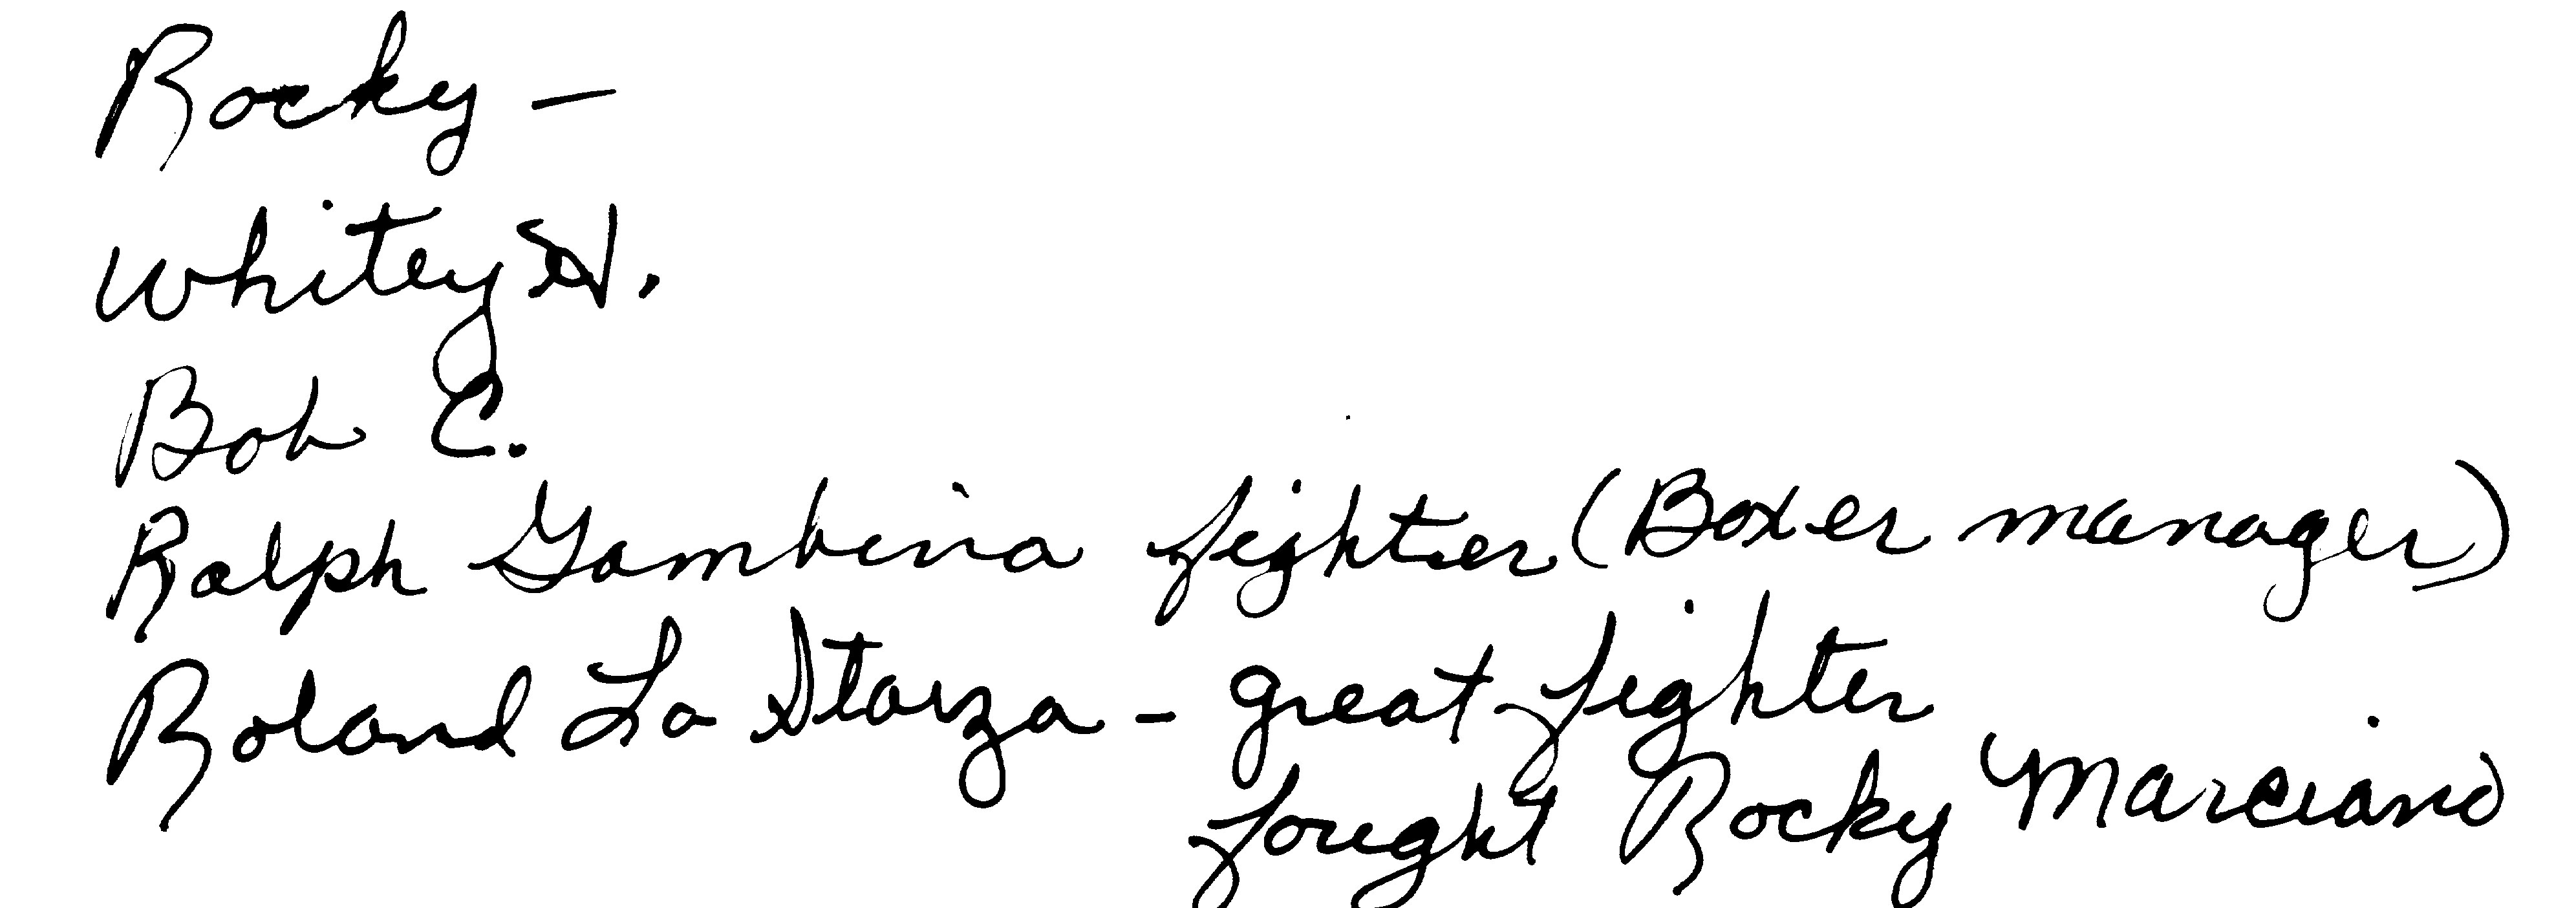 Rocky —
Whitey H.
Bob C.
Ralph Gambina fighter (Boxer manager)
Roland La Starza - great fighter
fought Rocky Marciano